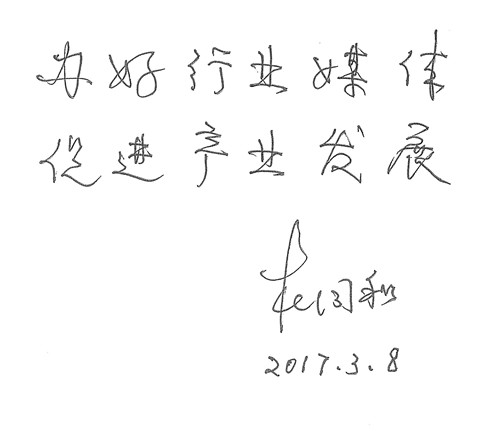 办好行业媒体
促进产业发展
2017.3.8